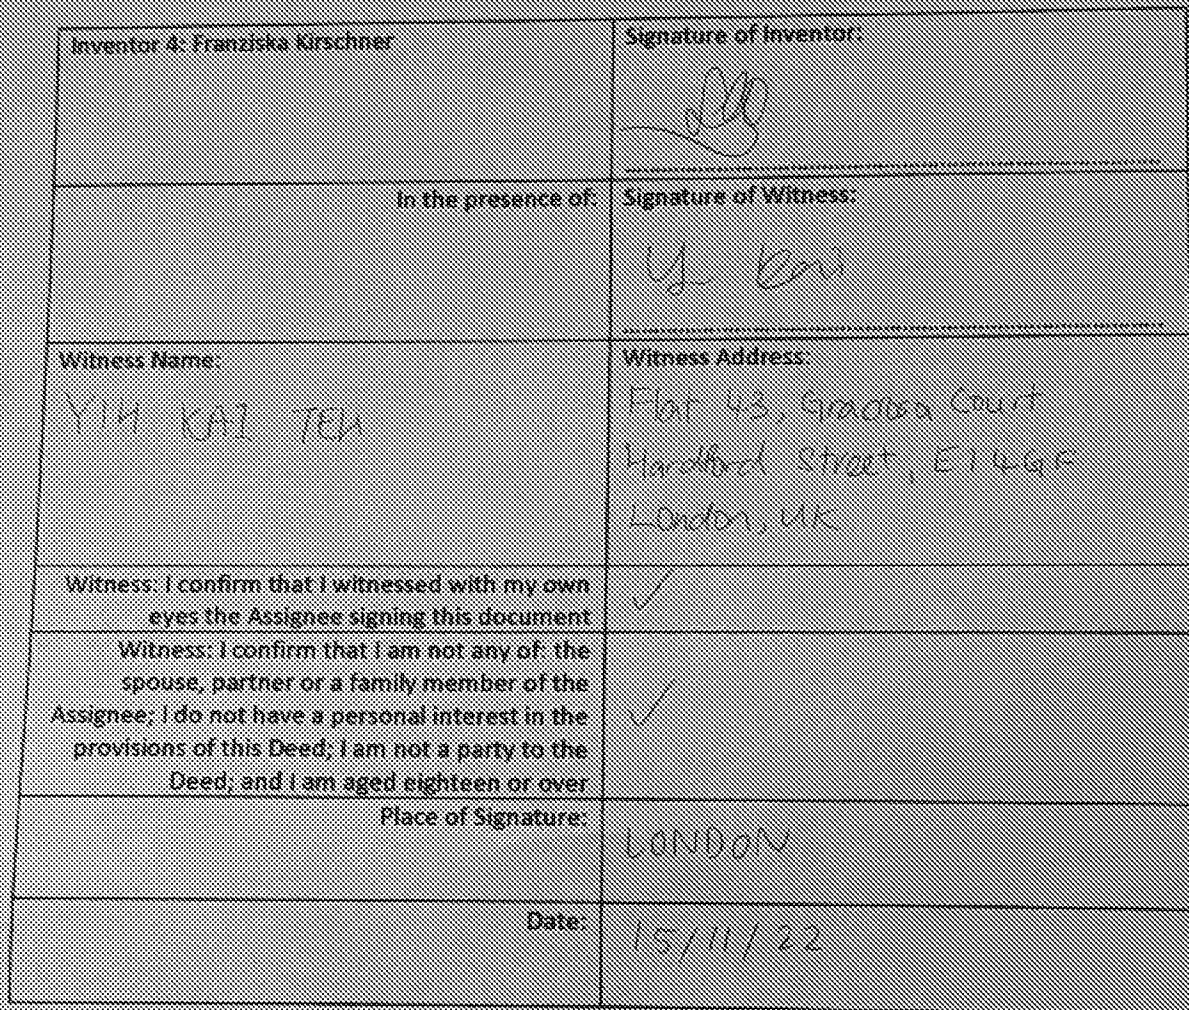 Inventor 4: Franziska Kirschner
Signature of Inventor:
In the presence of:
Signature of Witness:
Witness Name:
YIH KAI TEH
Witness Address:
Flat 43, Court
Street, E1 4GF
London, UK
Witness: I confirm that I witnessed with my own
eyes the Assignee signing this document
✓
Witness: I confirm that I am not any of: the
spouse, partner or a family member of the
Assignee; I do not have a personal interest in the
provisions of this Deed; I am not a party to the
Deed; and I am aged eighteen or over
✓
Place of Signature:
LONDON
Date:
15/11/22